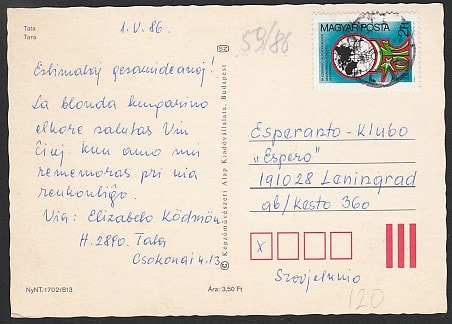 Tata
Тата
1. V. 86.
59/86
MAGYAR POSTA
2 Ft
Estimataj gesamideanoj!
La blonda hungarino
elkore salutas Vin
ĉiuj kun amo mi
rememoras pri nia
renkontiĝo.
Via: Elizabelo Ködmön
H. 2890. Tata
Csokonai 4.13.
52
© Képzőművészeti Alap Kiadóvállalata, Budapest
Esperanto-Klubo
„Espero"
191028 Leningrad
ab/kesto 360
x
Sovjetunio
120
NyNT.1702/813.
Ára: 3,50 Ft